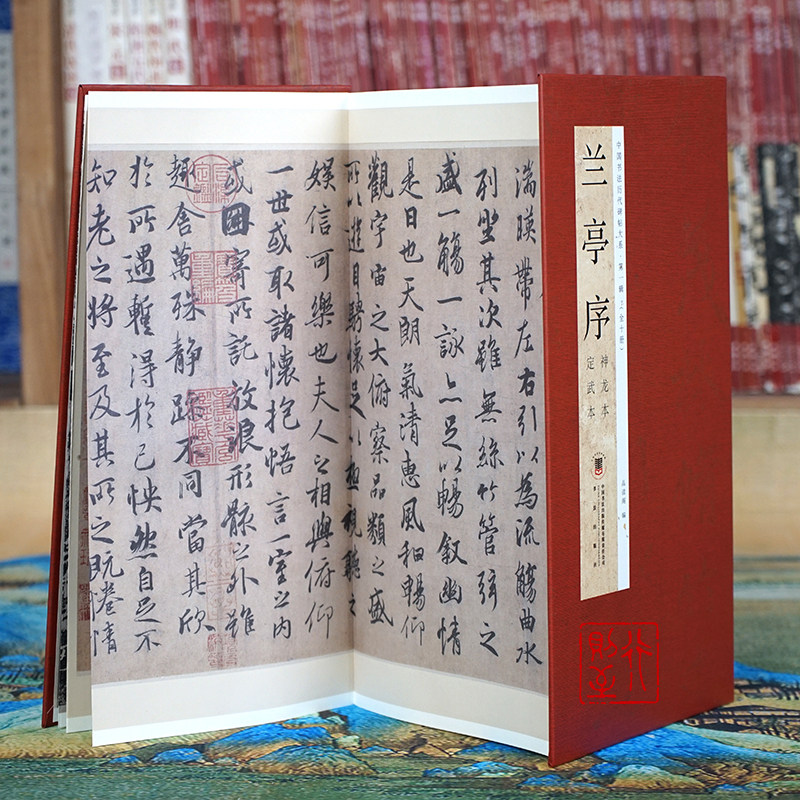 中国书法历代碑帖大系
兰亭序
神龙本
定武本
湍暎帶左右引以為流觴曲水
列坐其次雖無絲竹管弦之
盛一觴一詠亦足以暢叙幽情
是日也天朗氣清惠風和暢仰
觀宇宙之大俯察品類之盛
所以遊目騁懷足以極視聽之
娛信可樂也夫人之相與俯仰
一世或取諸懷抱悟言一室之內
或因寄所託放浪形骸之外雖
趣舍萬殊靜躁不同當其欣
於所遇蹔得於己怏然自足不
知老之將至及其所之既惓情